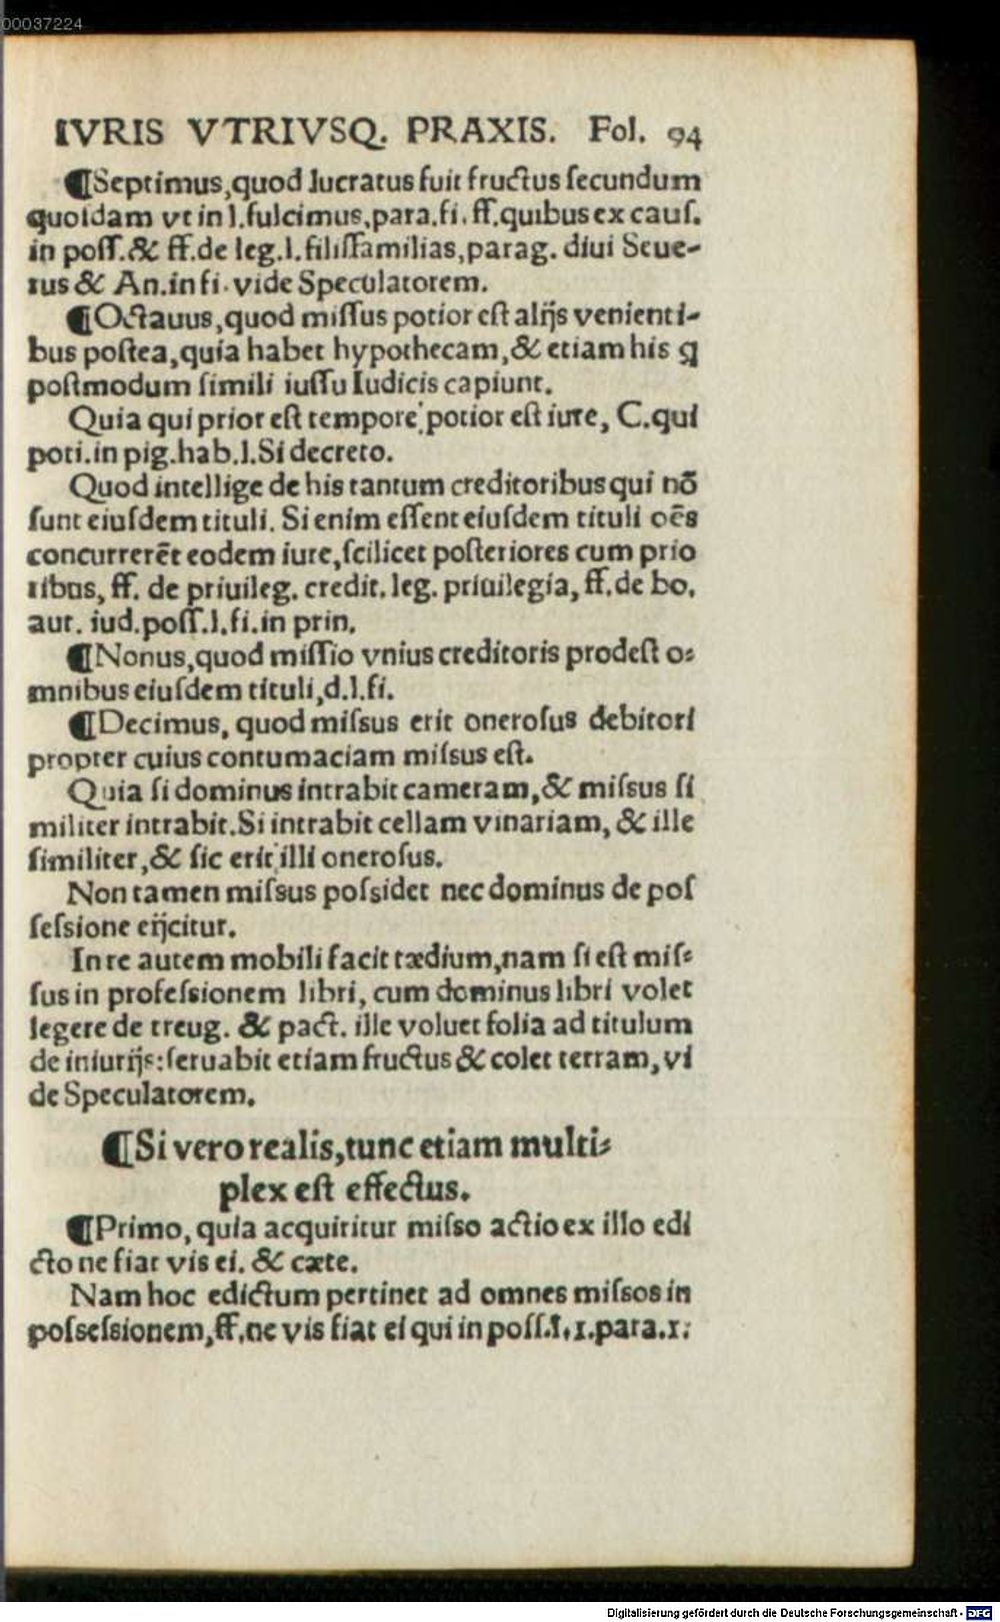 00037224
IVRIS VTRIVSQ. PRAXIS. Fol. 94
¶Septimus,quod lucratus fuit fructus ſecundum
quoſdam vt in l.fulcimus,para.fi.ff.quibus ex cauſ.
in poſſ.& ff.de leg.l.filiſſamilias,parag. diui Seue-
rus & An.in fi.vide Speculatorem.
¶Octauus,quod miſſus potior eſt alijs venienti-
bus poſtea,quia habet hypothecam,& etiam his q
poſtmodum ſimili iuſſu Iudicis capiunt.
Quia qui prior eſt tempore potior eſt iure, C.qui
poti.in pig.hab.l.Si decreto.
Quod intellige de his tantum creditoribus qui nõ
ſunt eiuſdem tituli. Si enim eſſent eiuſdem tituli oẽs
concurrerẽt eodem iure,ſcilicet poſteriores cum prio
ribus, ff. de priuileg. credit. leg. priuilegia, ff.de bo.
aut. iud.poſſ.l.fi.in prin.
¶Nonus,quod miſſio vnius creditoris prodeſt o-
mnibus eiuſdem tituli,d.l.fi.
¶Decimus, quod miſsus erit oneroſus debitori
propter cuius contumaciam miſsus eſt.
Quia ſi dominus intrabit cameram,& miſsus ſi
militer intrabit.Si intrabit cellam vinariam, & ille
ſimiliter,& ſic erit illi oneroſus.
Non tamen miſsus poſsidet nec dominus de poſ
ſeſsione eijcitur.
In re autem mobili facit tædium,nam ſi eſt miſ-
ſus in profeſsionem libri, cum dominus libri volet
legere de treug. & pact. ille voluet folia ad titulum
de iniurijs:ſeruabit etiam fructus & colet terram, vi
de Speculatorem.
¶Si vero realis,tunc etiam multi-
plex eſt effectus.
¶Primo, quia acquiritur miſso actio ex illo edi
cto ne fiat vis ei. & cæte.
Nam hoc edictum pertinet ad omnes miſsos in
poſseſsionem,ff.ne vis fiat ei qui in poſſ.l.1.para.1.
Digitalisierung gefördert durch die Deutsche Forschungsgemeinschaft - DFG